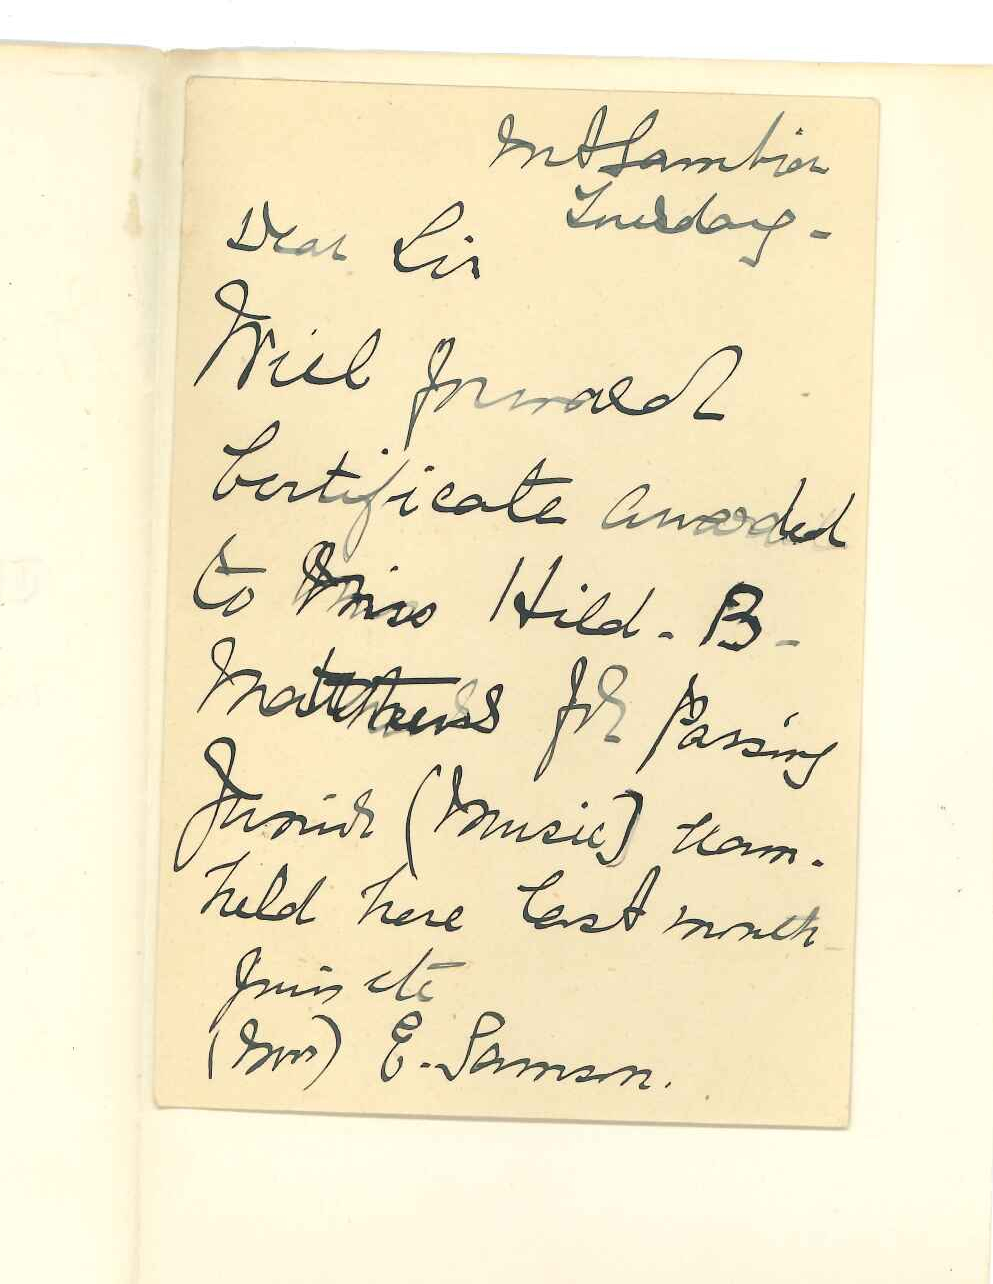 Mt Gambier
Tuesday -
Dear Sir
Will forward
Certificate awarded
to Miss Hild. B -
Matthews for Passing
Junior (Music) Exam.
held here last month
Yours etc
(Mrs) E. Samson.